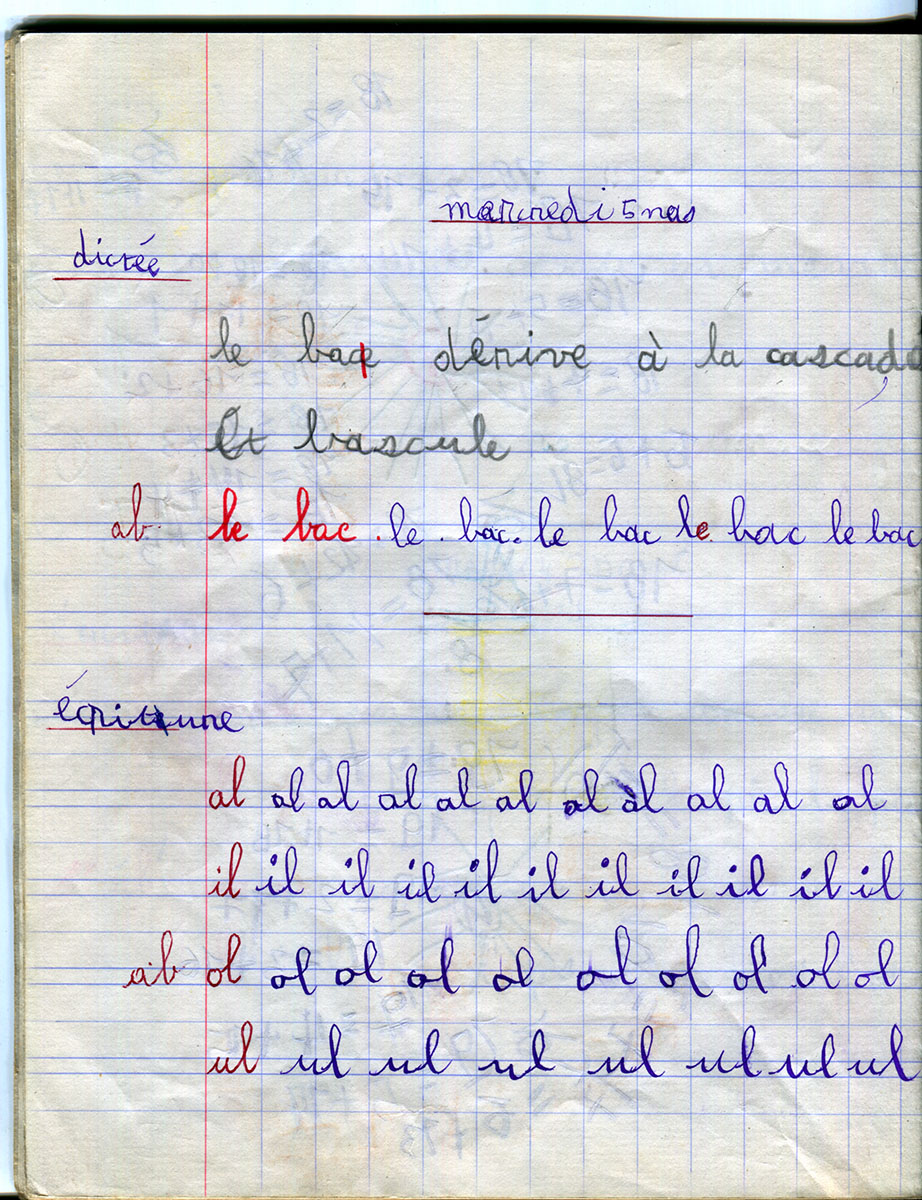 marcredi 5 mas
dictée
le bac dérive à la cascade
Et bascule
ab le bac . le . bac. le bac le bac le bac
écriture
al al al al al al al al al al al
il il il il il il il il il il il
ab ol ol ol ol ol ol ol ol ol ol
ul ul ul ul ul ul ul ul